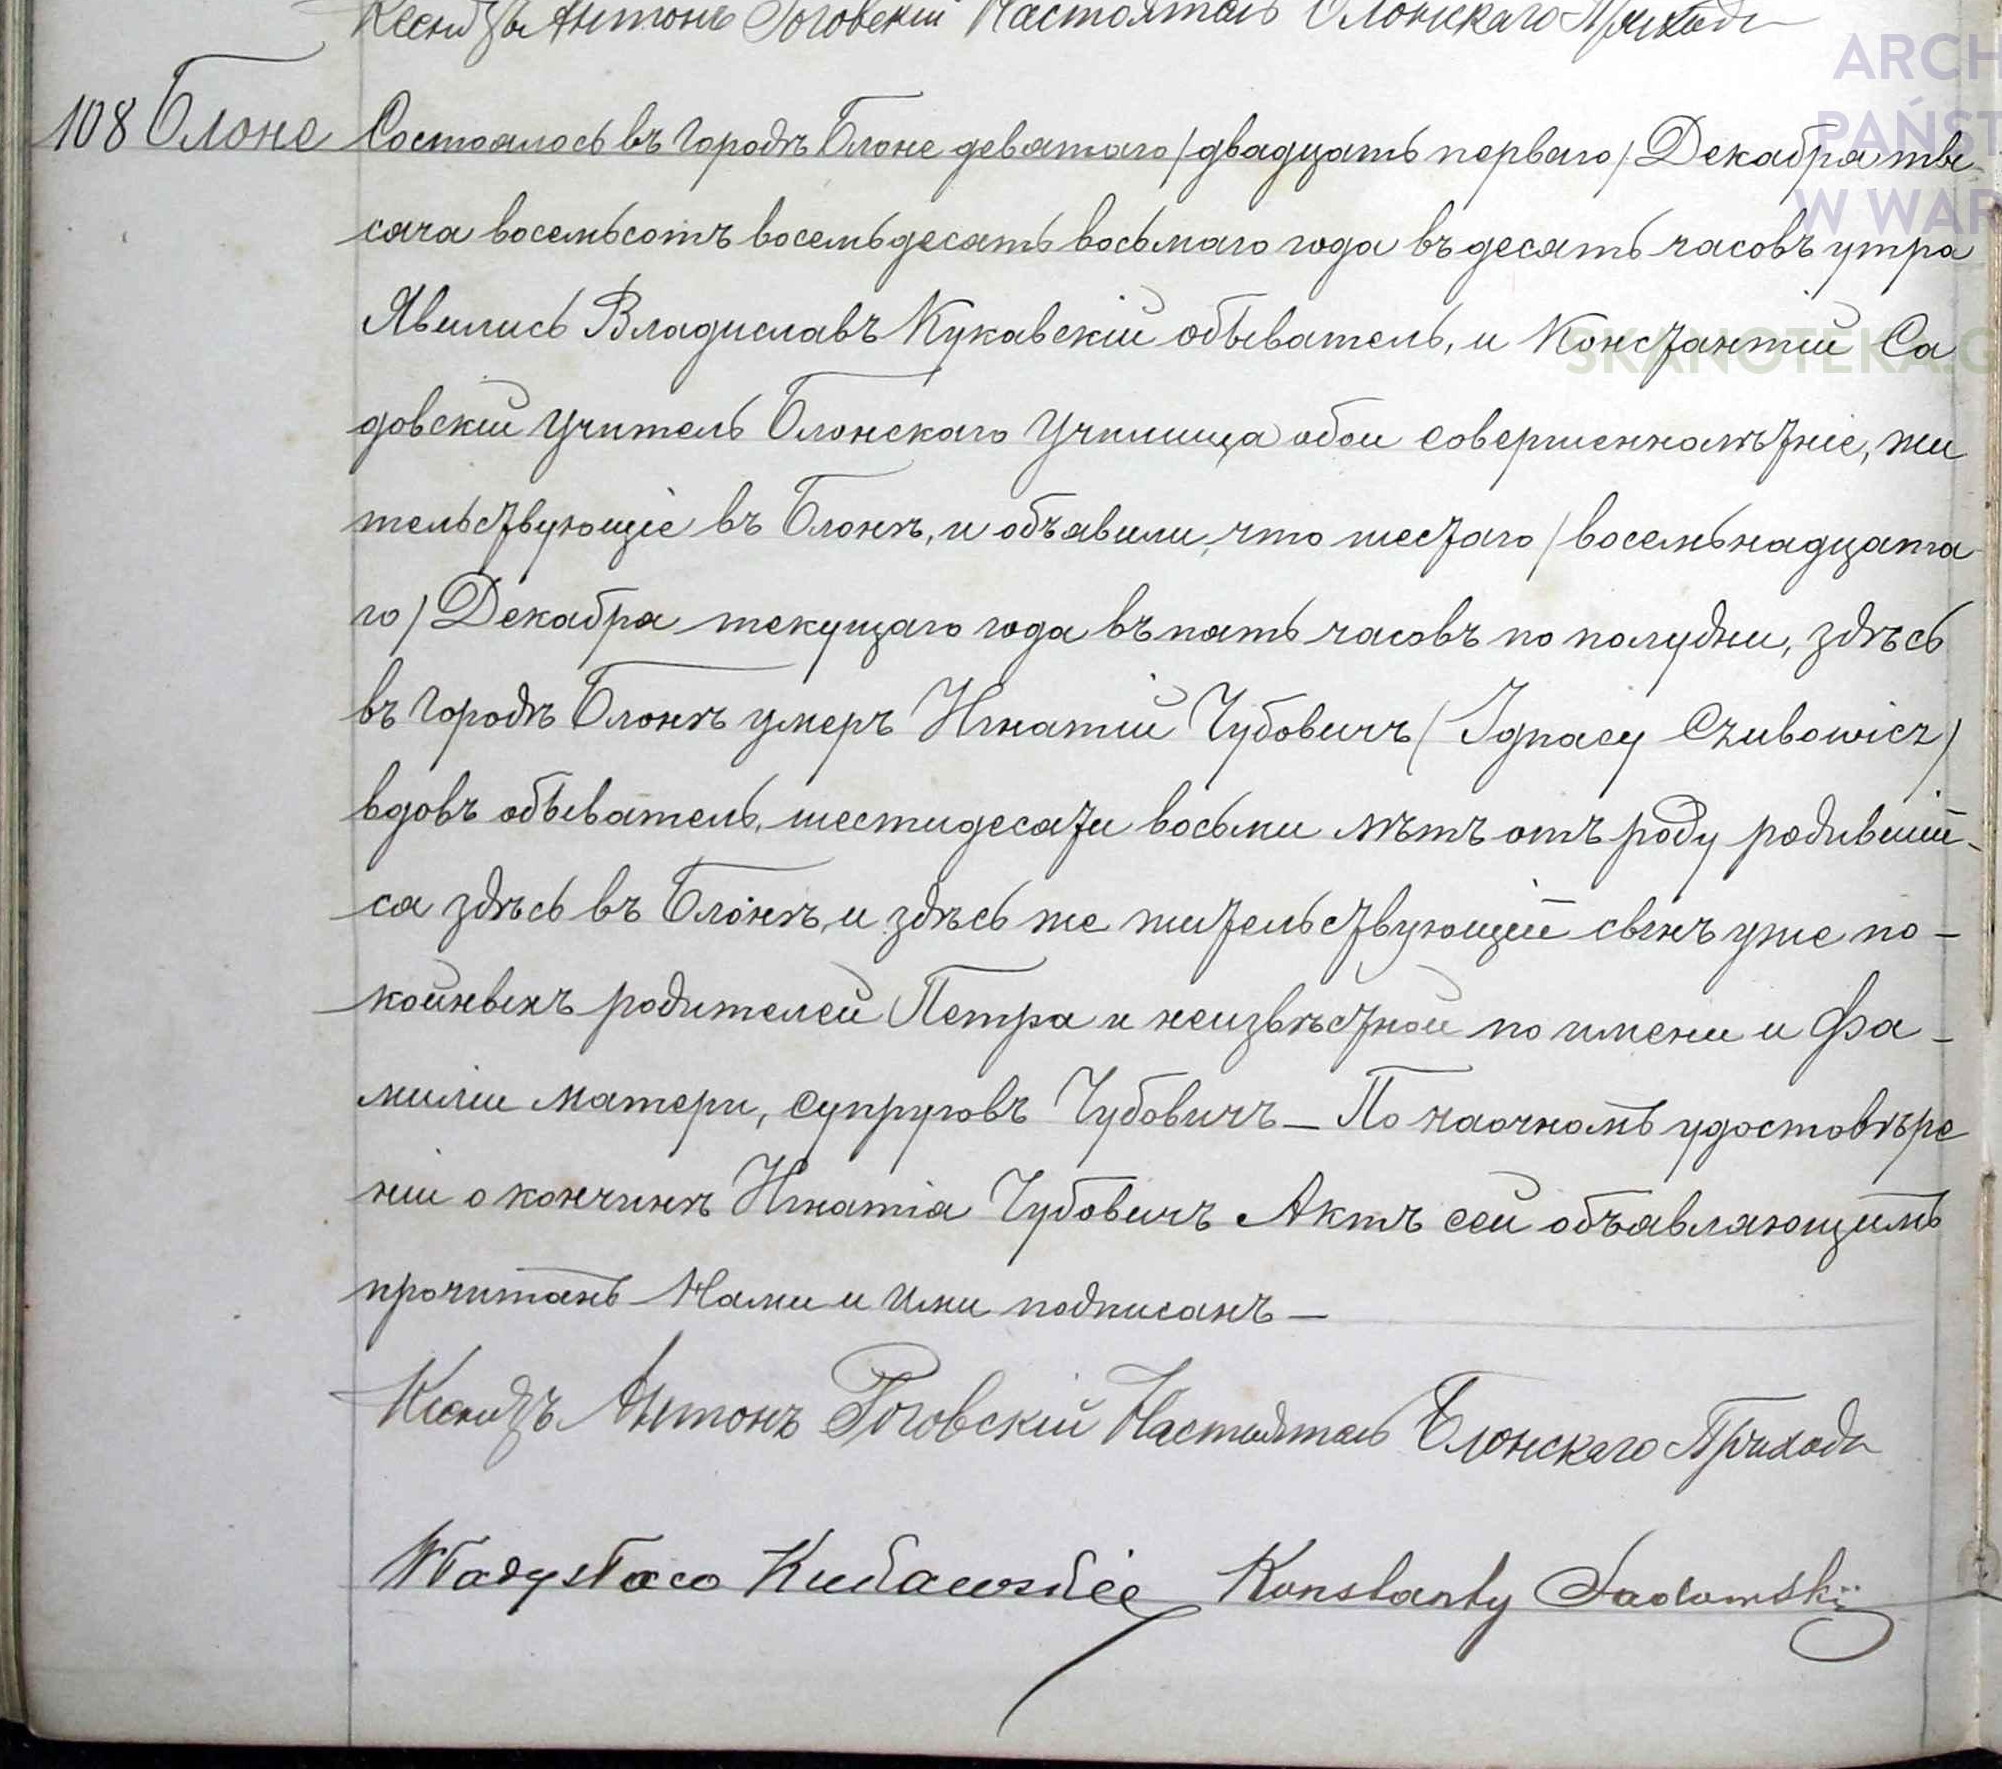 Ксендзъ Антонъ Роговскій Настоятель Блонскаго Прихода
ARCH
PAŃST
W WAR
SKANOTEKA.G
108 Блоне Состоялось въ городѣ Блоне девятаго /двадцать перваго/ Декабря ты-
сяча восемьсотъ восемьдесять восьмаго года въ десять часовъ утра
Явились Владиславъ Кукавскій обыватель, и Константій Са
довскій Учитель Блонскаго Училища обои совершеннолѣтніе, жи
тельствующіе въ Блонѣ, и объявили, что шестаго /восемьнадцата
го/ Декабря текущаго года въ пять часовъ по полудни, здѣсь
въ городѣ Блонѣ умеръ Игнатій Чубовичъ (Ignacy Czubowicz)
вдовъ обыватель, шестидесяти восьми лѣтъ отъ роду родившій-
ся здѣсь въ Блонѣ, и здѣсь же жительствующій сынъ уже по-
койныхъ родителей Петра и неизвѣстной по имени и фа-
миліи матери, супруговъ Чубовичъ – По наочномъ удостовѣре
ніи о кончинѣ Игнатія Чубовичъ Актъ сей объявляющимъ
прочитанъ Нами и ими подписанъ –
Ксендзъ Антонъ Роговскій Настоятель Блонскаго Прихода
Władysław Kukawskie Konstanty Sadowski